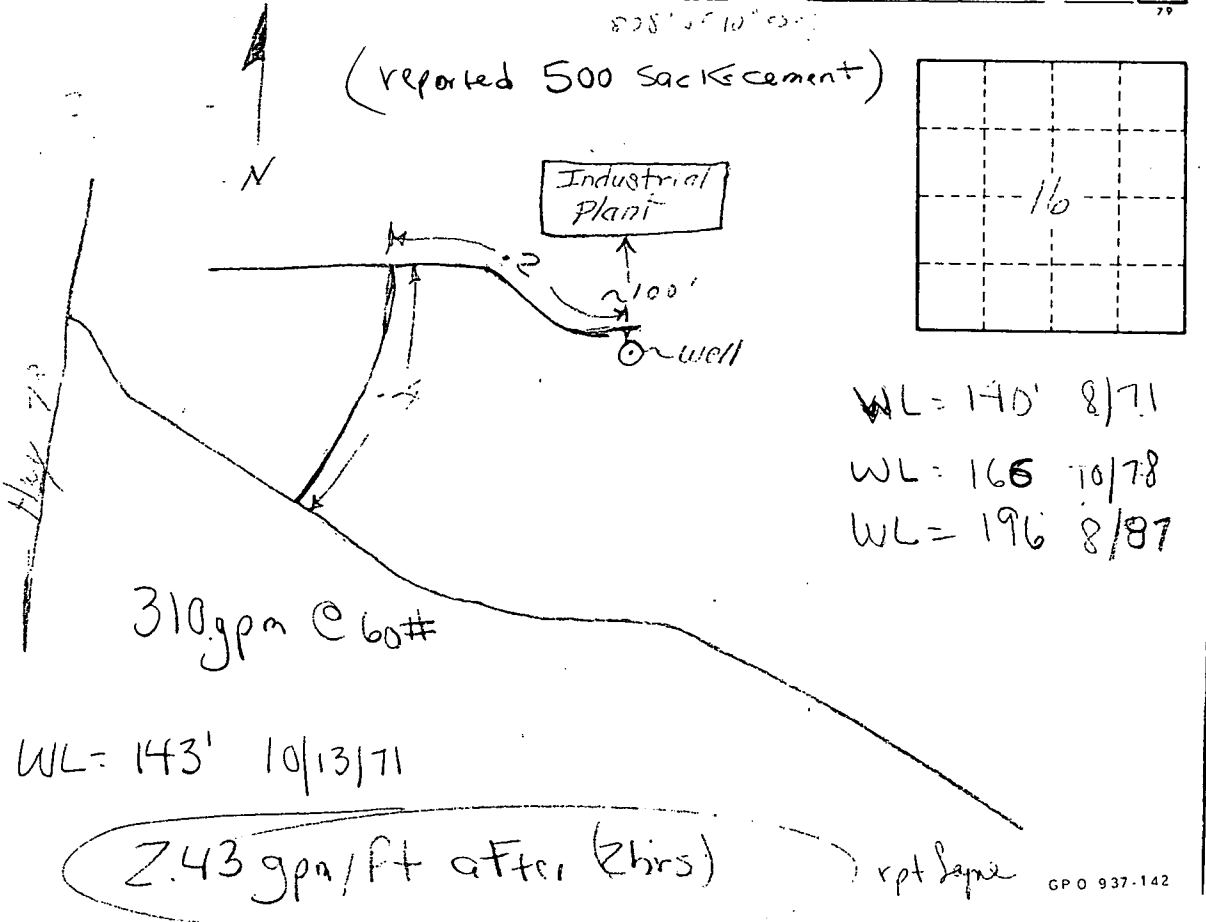 79
(reported 500 sacks cement)
N
Industrial
Plant
16
.2
~100'
~well
WL = 140' 8/71
WL = 166 10/78
WL = 196 8/87
Hwy
310 gpm @ 60#
WL = 143' 10/13/71
2.43 gpm/ft after (2hrs)
rpt Layne
GPO 937-142